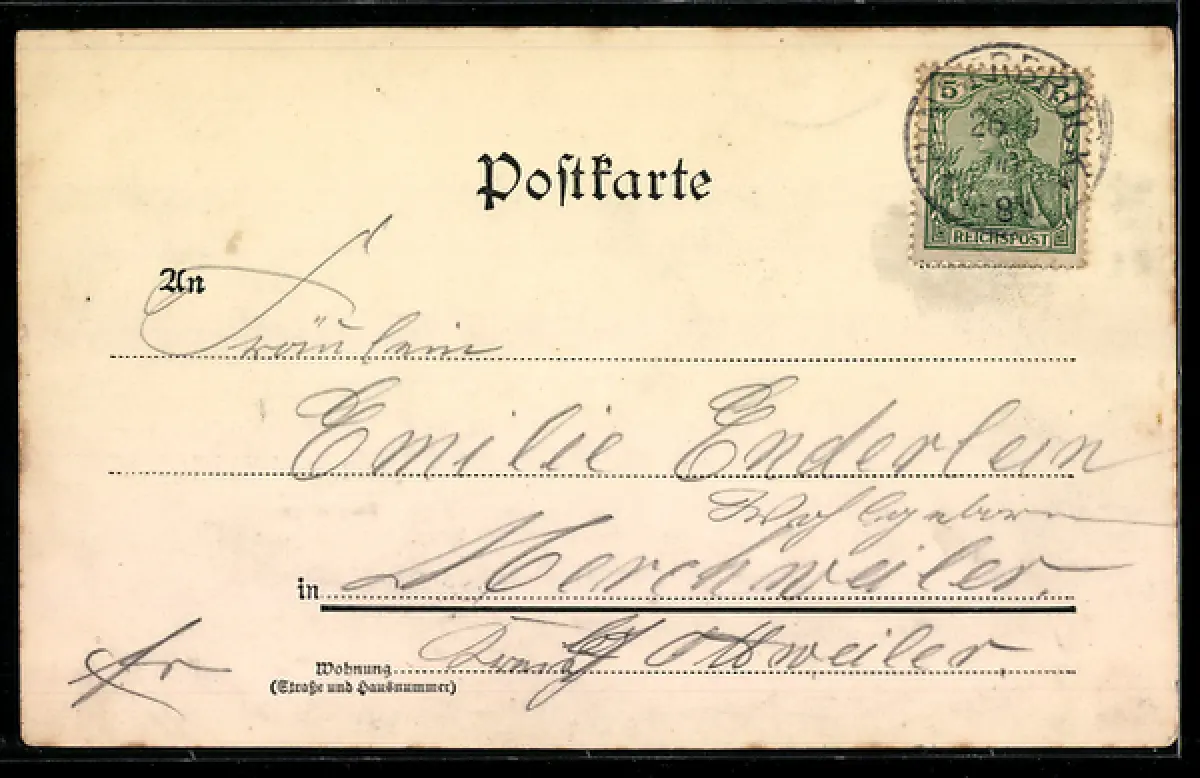 Postkarte
5
26
8N
REICHSPOST
An
Fräulein
Emilie Enderlein
Wohlgeboren
in Merchweiler.
Wohnung Kreis Ottweiler
(Straße und Hausnummer)
fr